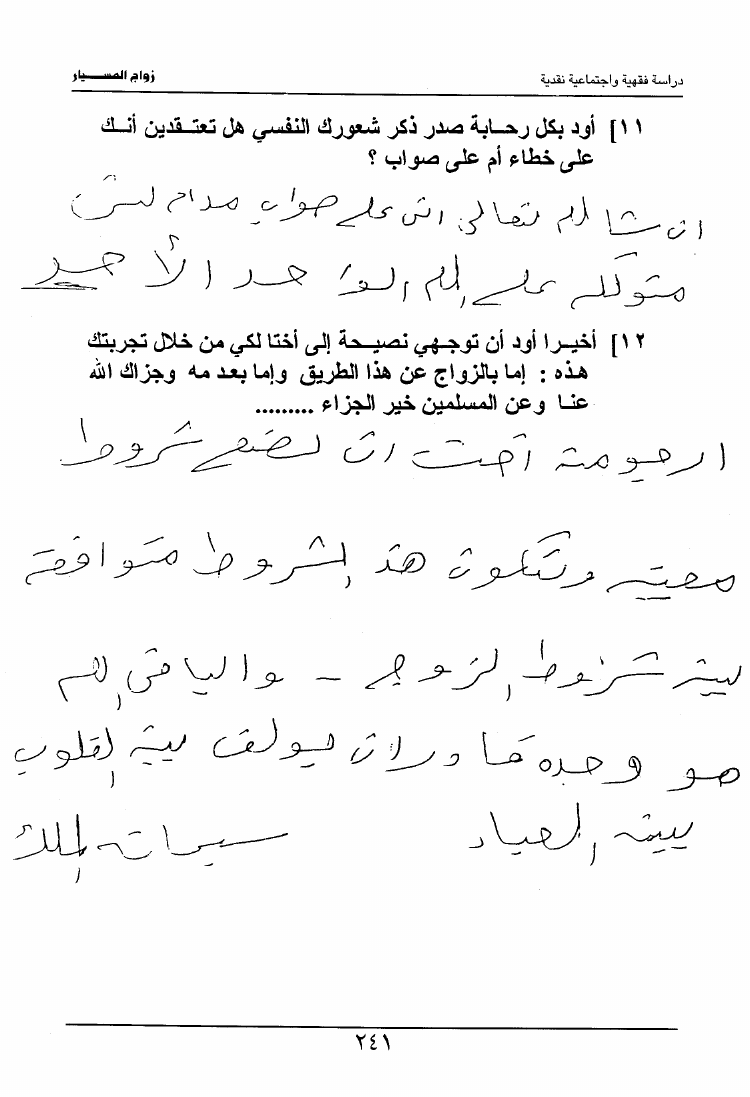 زواج المسيار
دراسة فقهية واجتماعية نقدية
[١١ أود بكل رحابة صدر ذكر شعورك النفسي هل تعتقدين أنك
على خطاء أم على صواب ؟
ان شا الله تعالى اني على صواب مدام
متوكله على الله الواحد الأحد
[١٢ أخيرا أود أن توجهي نصيحة إلى أختا لكي من خلال تجربتك
هذه : إما بالزواج عن هذا الطريق وإما بعدمه وجزاك الله
عنا وعن المسلمين خير الجزاء .........
ارجو من اخت ان تضع شروط
معينه وتكون هذ الشروط متوافقة
بين شروط الزوج - والباقى الله
هو وحده قادر ان يولف بين القلوب
بين العباد سبحان الملك
٢٤١